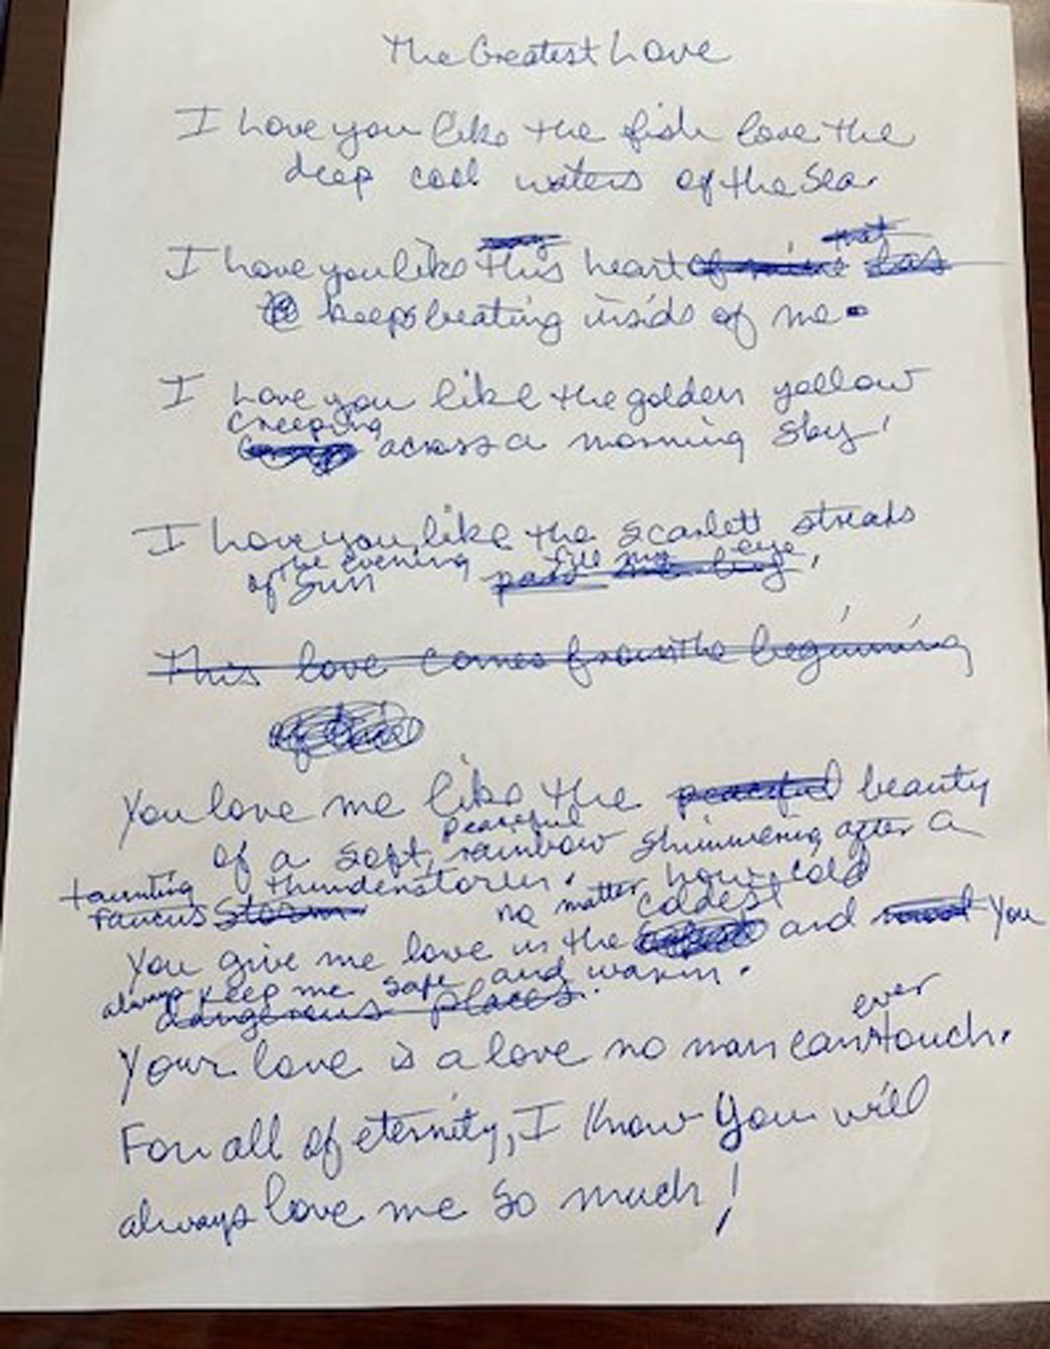 The Greatest Love
I love you like the fish love the
deep cool waters of the Sea.
I love you like this heart of mine has
keeps beating inside of me.
I love you like the golden yellow
Creeping
across a morning sky!
I love you like the scarlett streaks
of the evening sun pass me by fill my eye,
This love comes from the beginning
You love me like the peaceful beauty
of a soft, peaceful rainbow shimmering after a
taunting thunderstorm. how cold
raucus storm no matter coldest
You give me love in the and You
always keep me safe and warm.
dangerous places.
Your love is a love no man can ever touch.
For all of eternity, I know You will
always love me so much!